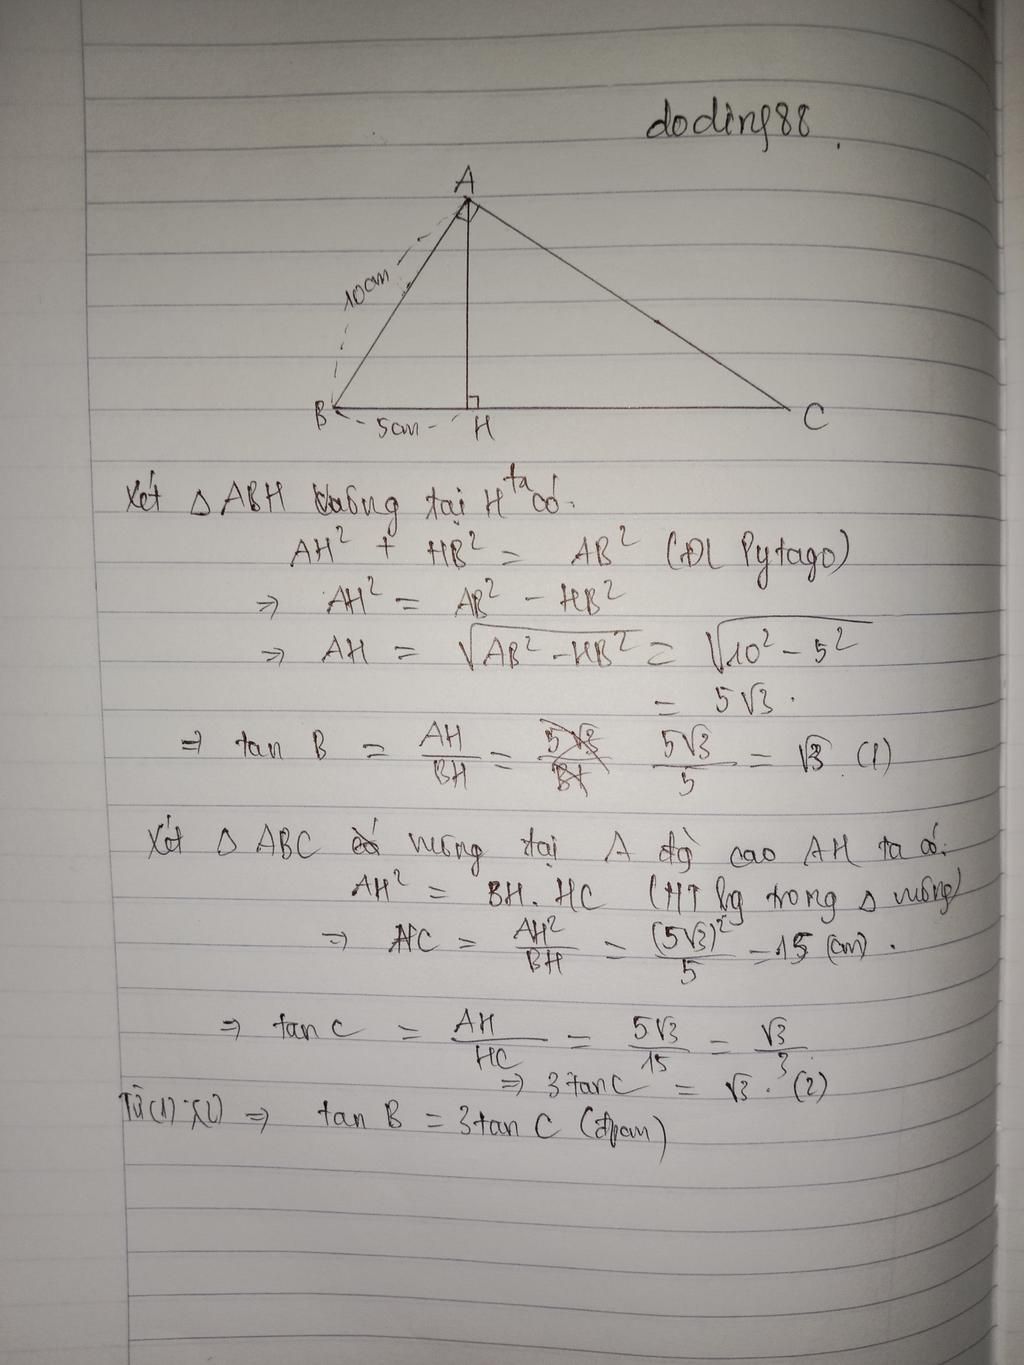 doding88.
A
10cm
B 5cm H C
Xét △ ABH vuông tại H ta có.
AH² + HB² = AB² (ĐL Pytago)
⇒ AH² = AB² - HB²
⇒ AH = √(AB² - HB²) = √(10² - 5²)
= 5√3.
⇒ tan B = AH/BH = 5√3/5 = √3 (1)
Xét △ ABC vuông tại A đg cao AH ta có:
AH² = BH. HC (HT lg trong △ vuông)
⇒ HC = AH²/BH = (5√3)²/5 = 15 (cm).
⇒ tan C = AH/HC = 5√3/15 = √3/3
⇒ 3 tan C = √3. (2)
Từ (1), (2) ⇒ tan B = 3tan C (đpcm)